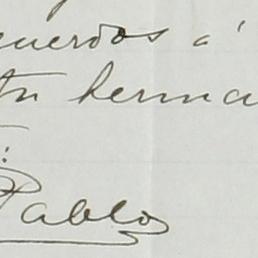 cuerdos á
tu herma
Pablo